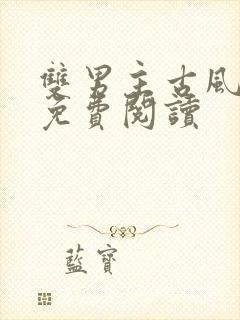 雙男主古風
免費閱讀
藍寶